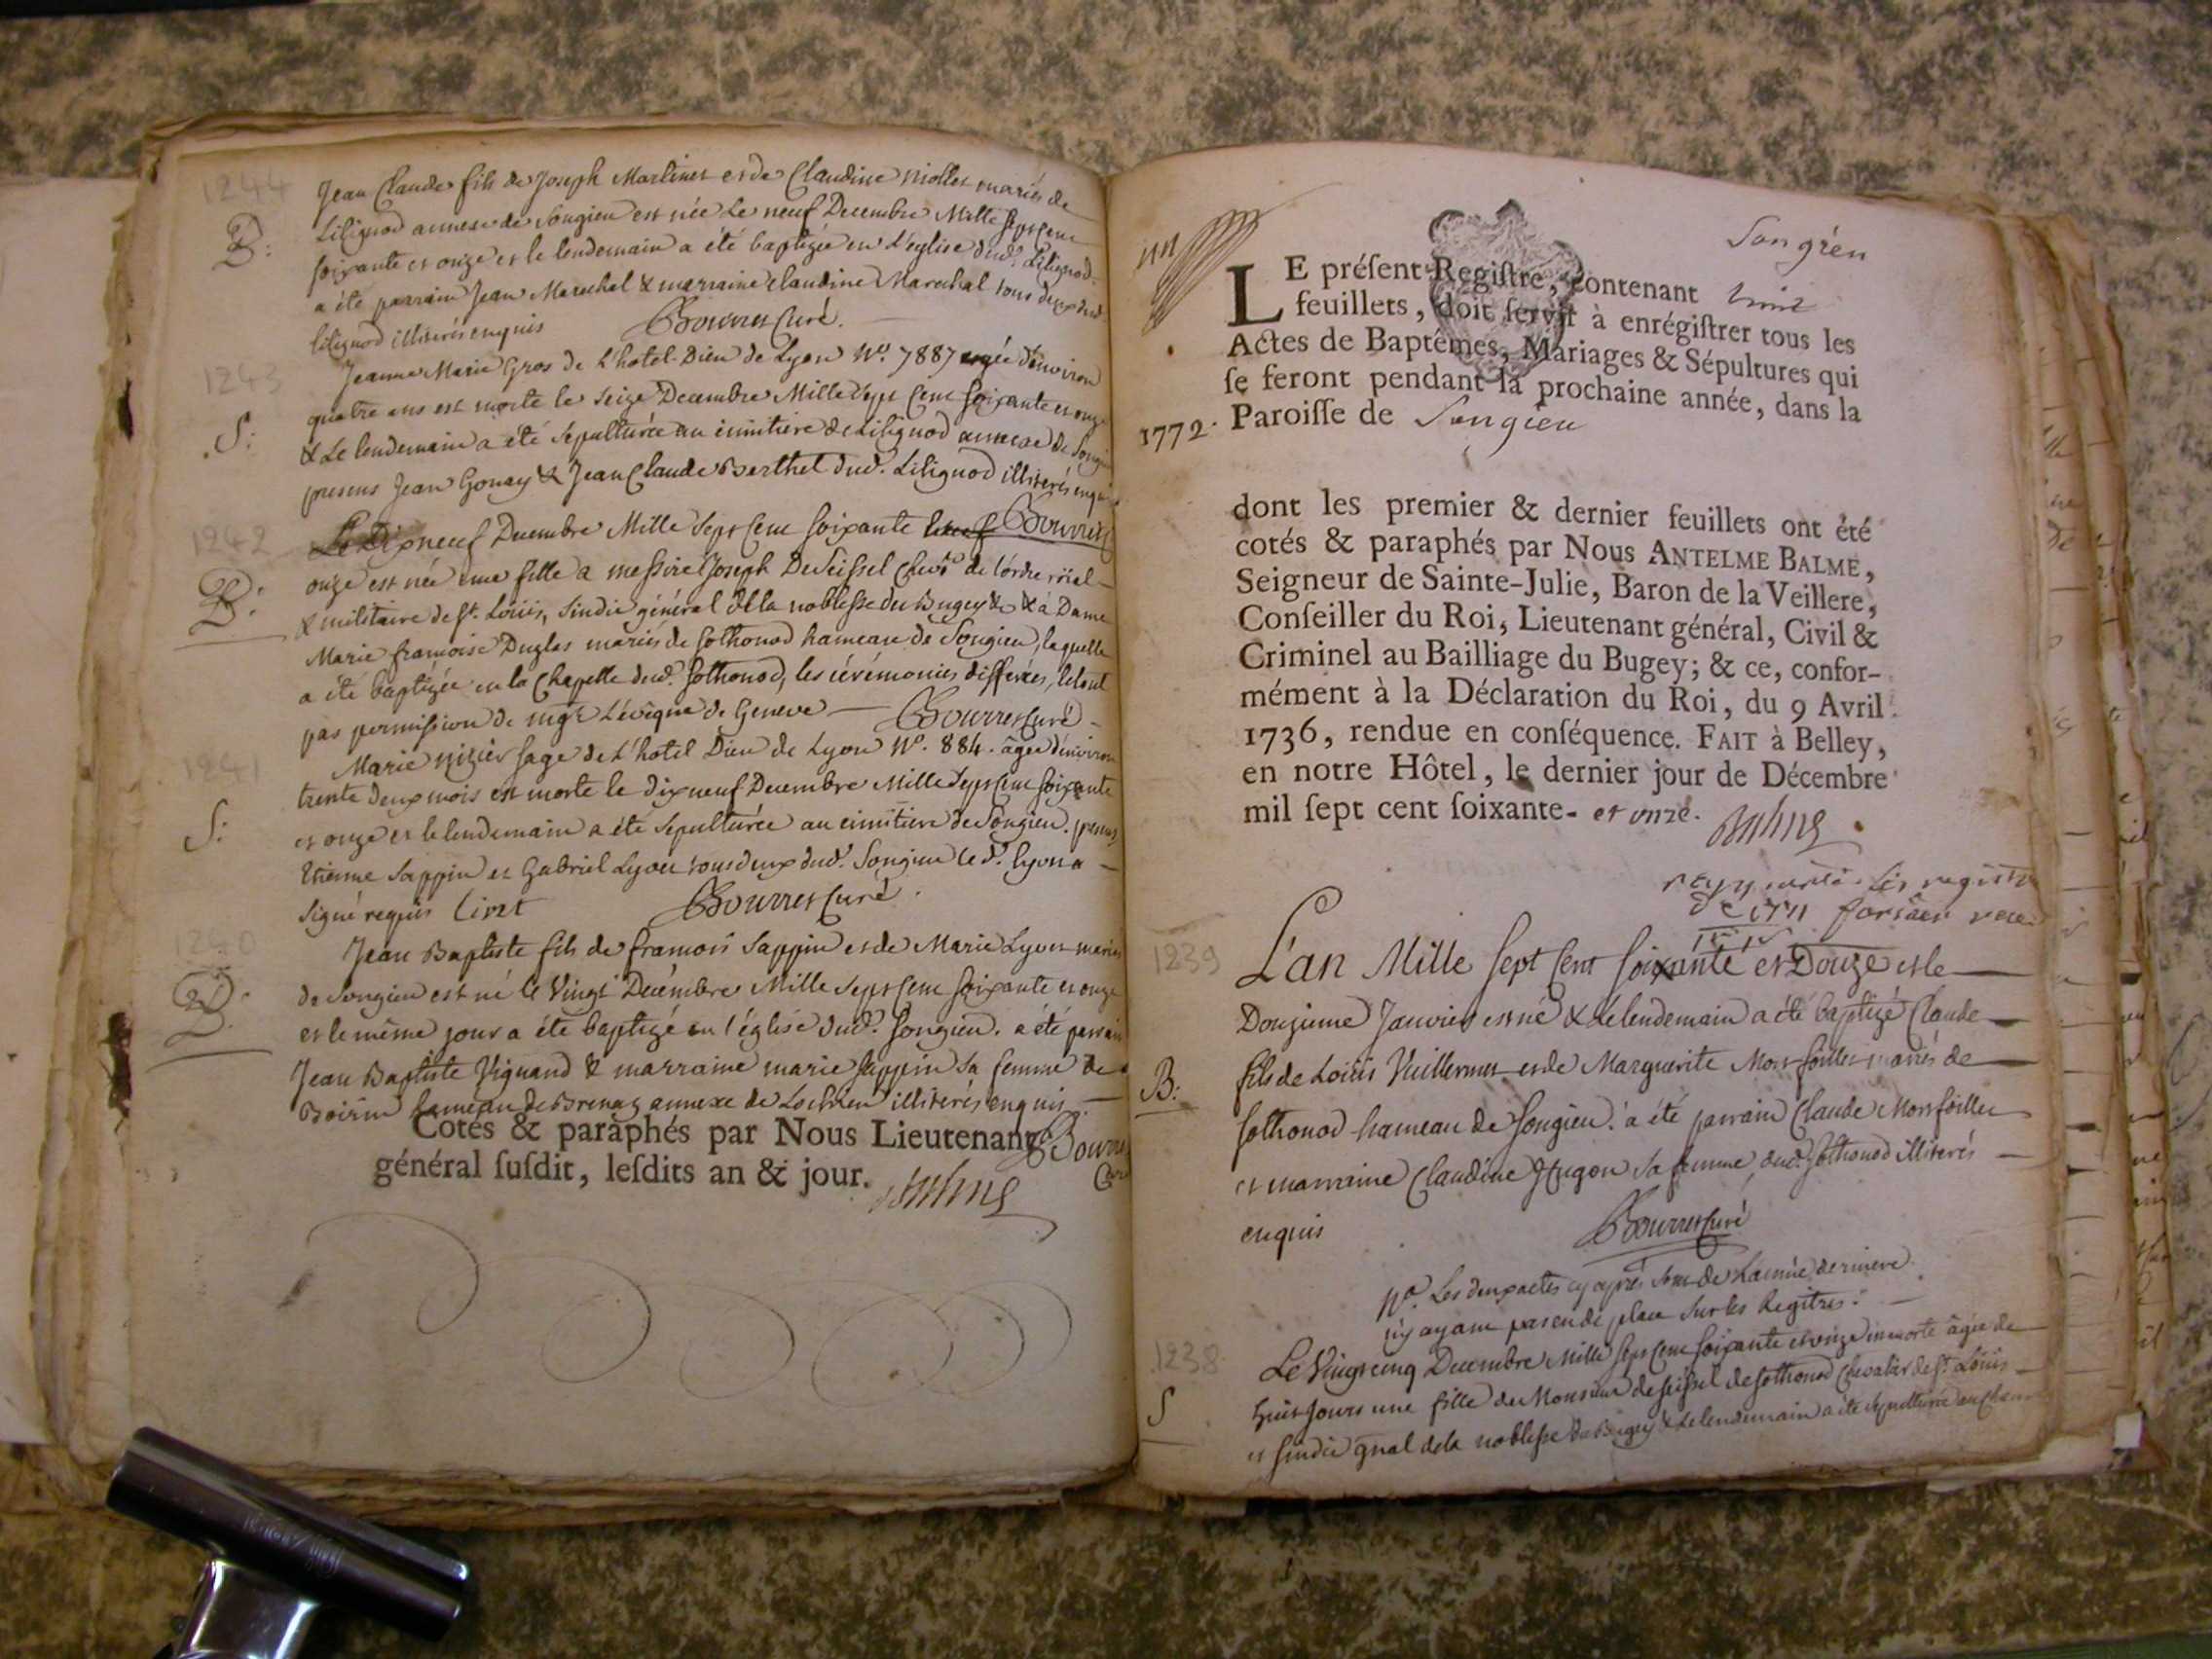 1244
B:
Jean Claude fils de Joseph Martinet et de Claudine Niollet mariés de
Lilignod annexe de Songieu est née Le neuf Decembre Mille sept cent
soixante et onze et le lendemain a été baptizée en l'eglise dud. Lilignod.
a été parrain Jean Marechal & marraine Claudine Marechal tous deux dud.
lilignod illiterés enquis Bourret Curé.
1243
S:
Jeanne Marie Gros de L'hotel-Dieu de Lyon No. 7887 agée d'environ
quatre ans est morte le seize Decembre Mille sept cent soixante et onze
& Le lendemain a été sepulturée au cimitiere de Lilignod annexe de Songieu
presens Jean Gonay & Jean Claude Berthet dud. Lilignod illiterés enquis
Bourret
1242
B:
Le Dixneuf Decembre Mille sept cent soixante
onze est née une fille a messire Joseph De Seissel Chevr de l'ordre röiel
& militaire de St. Loüis, Sindic général de la noblesse du Bugey & & à Dame
Marie françoise Duglas mariés de Sothonod hameau de Songieu, laquelle
a été baptizée en la Chapelle dud. Sothonod, les cérémonies differées, le tout
par permission de mgr L'évêque de Geneve — Bourret Curé
1241
S:
Marie nizier sage de L'hotel Dieu de Lyon No. 884. âgée d'environ
trente deux mois est morte le dixneuf Decembre Mille sept cent soixante
et onze et le lendemain a été sepulturée au cimitiere de Songieu. presens
Etienne Sappin et Gabriel Lyon tous deux dud. Songieu le d. lyon a
signé requis Liont Bourret Curé.
1240
B.
Jean Baptiste fils de francois Sappin et de Marie Lyon mariés
de Songieu est né le Vingt Decembre Mille sept cent soixante et onze
et le même jour a été baptizé en l'église dud. Songieu. a été parrain
Jean Baptiste Vignand & marraine marie Sappin sa femme de
hameau de Brenaz annexe de Lochieu illiterés enquis
Bourret
Curé
Cotés & paraphés par Nous Lieutenant
général ſuſdit, leſdits an & jour. Balme
Songieu
LE préſent Regiſtre, contenant huit
feuillets, doit ſervir à enrégiſtrer tous les
Actes de Baptêmes, Mariages & Sépultures qui
ſe feront pendant la prochaine année, dans la
1772. Paroiſſe de Songieu
dont les premier & dernier feuillets ont été
cotés & paraphés par Nous ANTELME BALME,
Seigneur de Sainte-Julie, Baron de la Veillere,
Conſeiller du Roi, Lieutenant général, Civil &
Criminel au Bailliage du Bugey; & ce, confor-
mément à la Déclaration du Roi, du 9 Avril
1736, rendue en conſéquence. FAIT à Belley,
en notre Hôtel, le dernier jour de Décembre
mil ſept cent ſoixante- et onze. Balme
1239
B:
L'an Mille sept Cent soixante et Douze et le
Douzieme Janvier est né & le lendemain a été baptizé Claude
fils de Loüis Vuillermet et de Marguerite mariés de
Sothonod hameau de Songieu. a été parrain Claude
et marraine Claudine Hugon sa femme dud. Sothonod illiterés
enquis Bourret Curé
Na. Les deux actes cy après sont de l'année derniere
n'y ayant pas eu de place sur les Regitres.
1238
S
Le Vingt cinq Decembre Mille sept cent soixante et onze est morte âgée de
huit jours une fille de Monsieur de Seissel de Sothonod Chevalier de St. Loüis
et Sindic gnal de la noblesse du Bugey & le lendemain a été sepulturée au